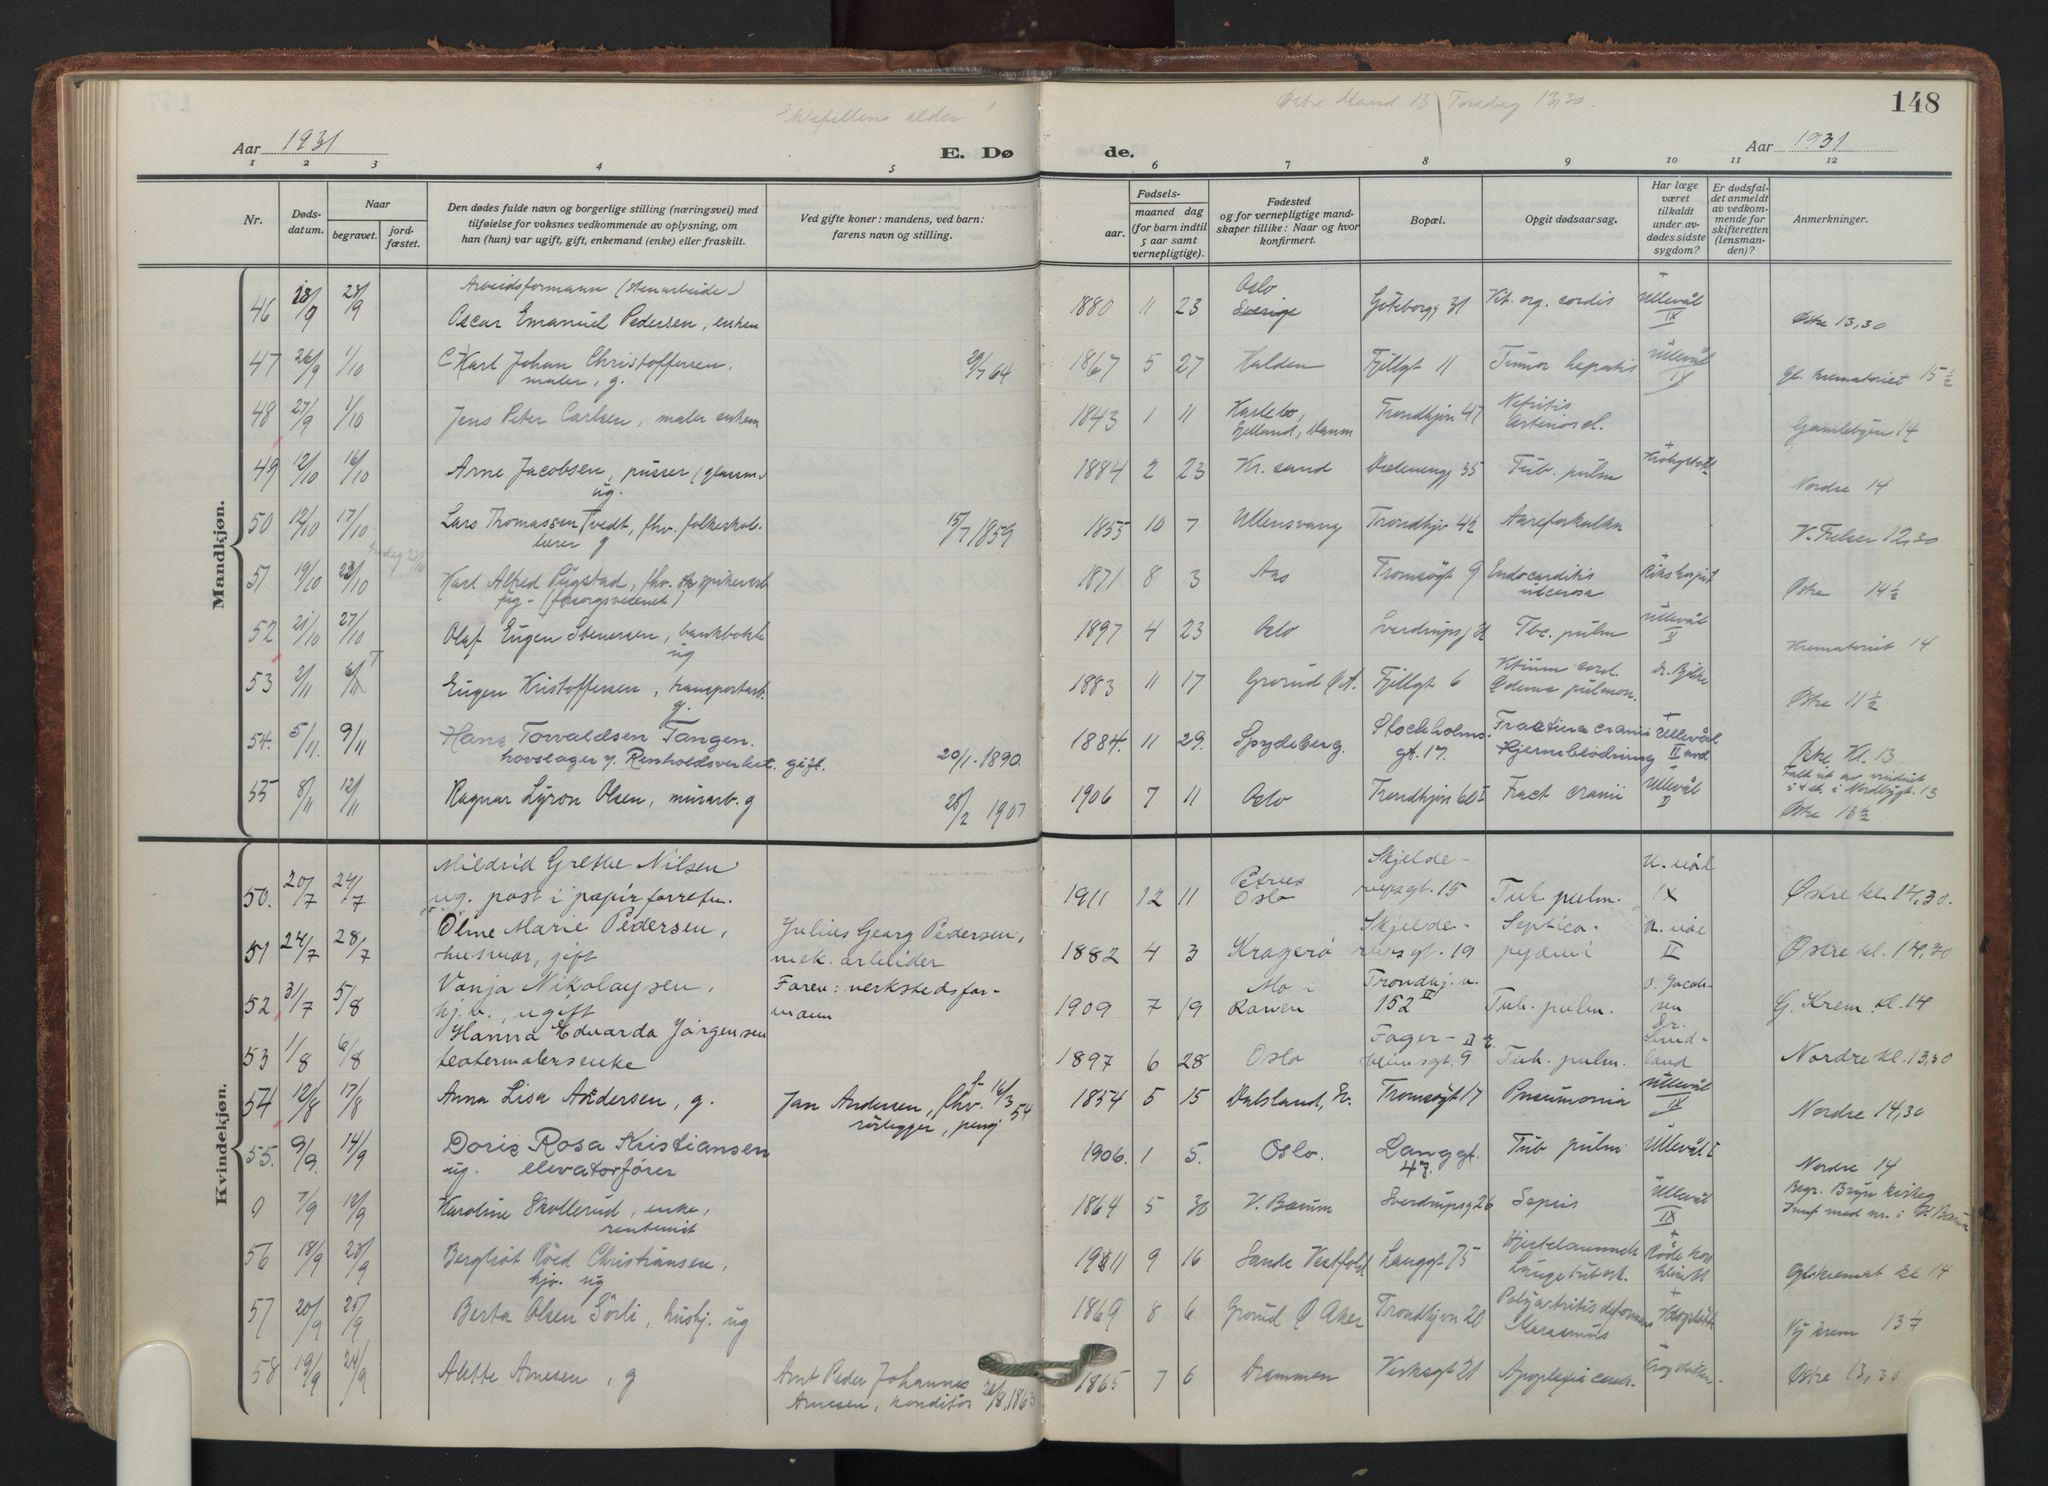 Østre Mand 13 Torsdag 13,30.
148
Aar 1931
E. Dø
de.
Aar 1931
1 2 3 4 5 6 7 8 9 10 11 12
Nr.
Døds-
datum.
Naar
begravet.
jord-
fæstet.
Den dødes fulde navn og borgerlige stilling (næringsvei) med
tilføielse for voksnes vedkommende av oplysning, om
han (hun) var ugift, gift, enkemand (enke) eller fraskilt.
Ved gifte koner: mandens, ved barn:
farens navn og stilling.
Fødsels-
aar.
maaned dag
(for barn indtil
5 aar samt
vernepligtige).
Fødested
og for vernepligtige mand-
skaper tillike: Naar og hvor
konfirmert.
Bopæl.
Opgit dødsaarsag.
Har læge
været
tilkaldt
under av-
dødes sidste
sygdom?
Er dødsfal-
det anmeldt
av vedkom-
mende for
skifteretten
(lensman-
den)?
Anmerkninger.
Mandkjøn.
Arbeidsformann (stenarbeide)
46 18/9 23/9 Oscar Emanuel Pedersen, enkem 1880 11 23 Oslo Sverige Göteborgg 31 Vit. org. cordis + Ullevål IX Østre 13,30
47 26/9 1/10 Karl Johan Christoffersen, 29/7 64 1867 5 27 Halden Fjellgt 11 Tumor hepatis Ullevål IX Gl. Krematoriet 15 1/2
maler, g.
48 27/9 1/10 Jens Peter Carlsen, maler enkem 1843 1 11 Karlebo, Trondhjsv 47 Nefritis Gamlebyen 14
Sjelland, Danm Arterioscl.
49 12/10 16/10 Arne Jacobsen, pusser (glassm.) 1884 2 23 Kr.sand 35 Tub. pulm + Nordre 14
ug.
50 12/10 17/10 Lars Thomassen Tvedt, fhv. folkeskol. 15/7 1859 1855 10 7 Ullensvang Trondhjsv 42 Aareforkalkn V. Frelser 12,30
lærer g
51 19/10 23/10 Karl Alfred Rugstad, fhv. spikerarb 1871 8 3 Aas Tromsøgt 9 Endocarditis Rikshospit Østre 14 1/2
ug - (forsorgsvesenet) ulcerosa
52 21/10 27/10 Olaf Eugen Stenersen, bankbokh 1897 4 23 Oslo Sverdrupsg Tbc. pulm Ullevål II Krematoriet 14
ug
53 2/11 6/11 Eugen Kristoffersen, transportarb. 1883 11 17 Grorud Ø.A. Fjellgt 6 Vitium cord. dr. Bjerke Østre 11 1/2
g. Ødema pulmon.
54. 5/11. 9/11 Hans Torvaldsen Tangen. 20/1-1890. 1884. 11 29. Spydeberg. Stockholms- Fractura cranii + Ullevål Østre Kl. 13
hovslager v. Renholdsverket. gift. gt. 17. Hjerneblödning II avd
55 8/11 12/11 Ragnar Lyron Olsen, murarb. g 28/2 1907 1906 7 11 Oslo Trondhjsv 60 I Fract cranii Ullevål II Falt ut av vinduet
i 4 et. i Nordbygt. 13
Østre 13 1/2
Kvindekjøn.
50. 20/7 24/7 Mildrid Grethe Nilsen 1911 12 11 Petrus Oslo Skjelde- Tub. pulm. U.vål IX Østre kl. 14,30.
ug. post i papirforretn. revsgt. 15
51 24/7 28/7 Oline Marie Pedersen, Julius Georg Pedersen, 1882 4 3 Kragerø Skjelde- Septico- U.vål II Østre kl. 14,30
husmor, gift mek. arbeider revsgt. 19 pyæmi
52 31/7 5/8 Vanja Nikolaysen, Faren: verkstedsfor- 1909 7 19 Mo i Trondhj.v. Tub. pulm. G. Krem kl. 14
hj.v., ugift mann Ranen 152 II
53 1/8 6/8 Hanna Edvarda Jørgensen 1897 6 28 Oslo Fager- Tub. pulm. Dr. Sund- Nordre kl. 13,30
teatermalersenke heimsgt. 9 land
54 12/8 17/8 Anna Lisa Andersen, g. Jan Andersen, fhv. f. 16/3 54 1854 5 15 Dalsland, Tromsøgt 17 Pneumonia Ullevål IX Nordre 14,30
rørlegger, pensj
55. 9/9. 14/9 Doris Rosa Kristiansen 1906. 1 5. Oslo. Langgt. Tub pulm Ullevål I Nordre 14
ug. elevatorfører 47.
0 7/9 12/9 Karoline Skollerud, enke, 1864 5 30 V. Bærum Sverdrupsg 26 Sepsis Ullevål IX Begr. Bryn kirkeg
rentenist Innf med nr. i V. Bærum
56 18/9 23/9 Bergliot Røed Christiansen, 1911 9 16 Sande Vestfold Langgt 75 Hjertelammelse + Røde kors Gl. kremat kl 14
hjv. ug Lungetuberk. klinikk
57 20/9 25/9 Berta Olsen Sörli, hushj. ug 1869 8 6 Grorud Ø Aker Trondhjsv 20 Polyartritis deformans + Ny krem 13 1/2
Marasmus
58 19/9 24/9 Alette Arnesen, g Arnt Peder Johannes 1865 7 6 Drammen Verksgt 21 Apoplexia cerebr. Østre 13,30
Arnesen, konditor /8.1863